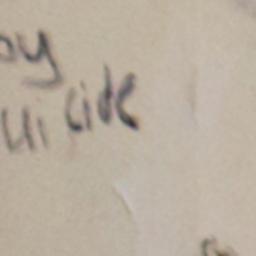 oy
uicide